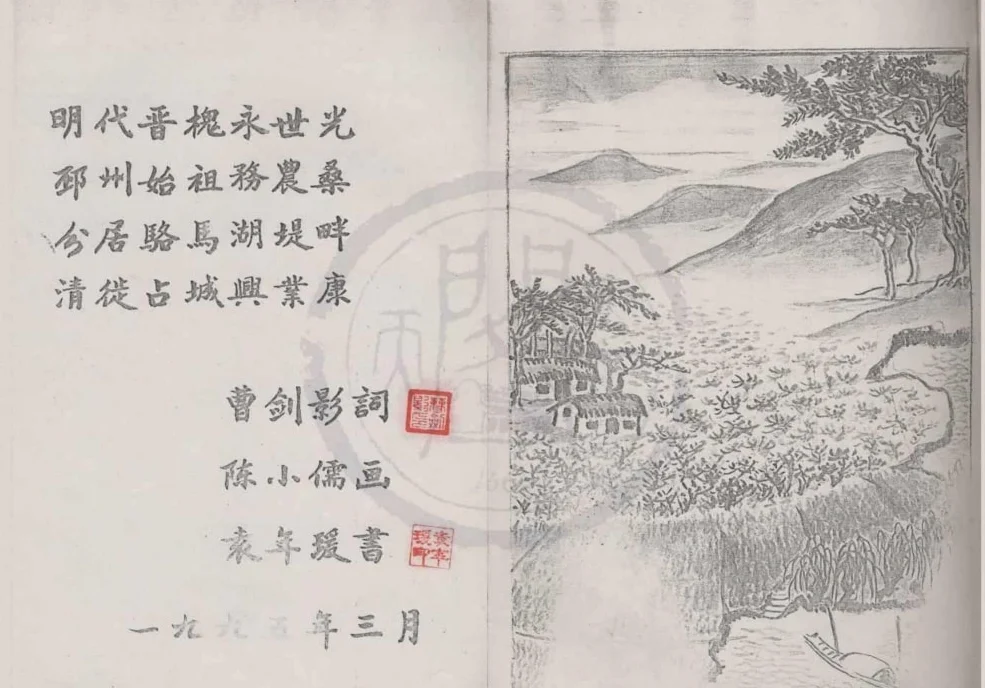 明代晋槐永世光
邳州始祖務農桑
分居駱馬湖堤畔
清從占城興業康
曹剑影詞
陈小儒画
袁年瑗書
一九九五年三月